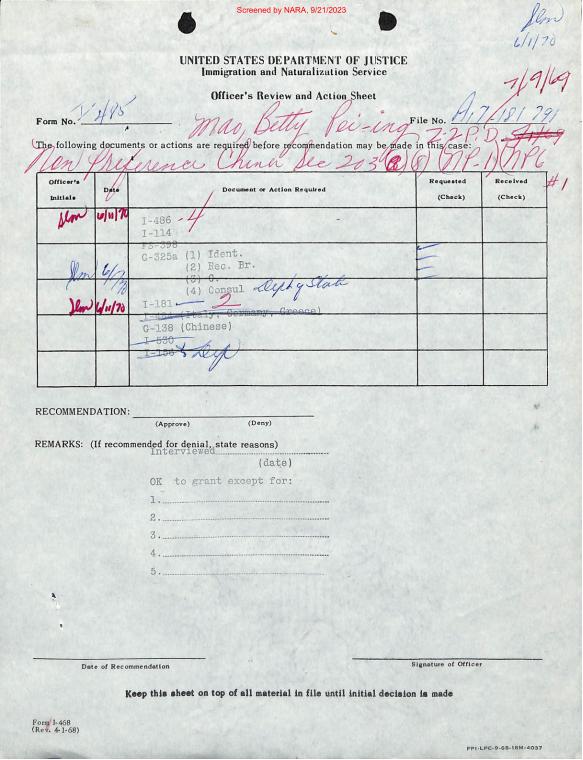 Screened by NARA, 9/21/2023
Slm
6/1/70
UNITED STATES DEPARTMENT OF JUSTICE
Immigration and Naturalization Service
7/9/69
Officer's Review and Action Sheet
Form No. I-485
Mao, Betty Pei-ing
File No. A17 181 791
2-2 P.D.
The following documents or actions are required before recommendation may be made in this case:
Non Preference China Sec 203 (a) (8) (NP-1) (NP6
#1
Officer's Initials
Date
Document or Action Required
Requested (Check)
Received (Check)
Slm 6/11/70
I-486 - 4
I-114
FS-398
G-325a (1) Ident.
(2) Rec. Br.
(3) G.
Slm 6/1/70
(4) Consul Dep of State
Slm 6/11/70
I-181 2
(Italy, Germany, Greece)
G-138 (Chinese)
I-530
RECOMMENDATION:
(Approve) (Deny)
REMARKS: (If recommended for denial, state reasons)
Interviewed
(date)
OK to grant except for:
1.
2.
3.
4.
5.
Date of Recommendation
Signature of Officer
Keep this sheet on top of all material in file until initial decision is made
Form I-468
(Rev. 4-1-68)
FPI-LPC-9-68-18M-4037